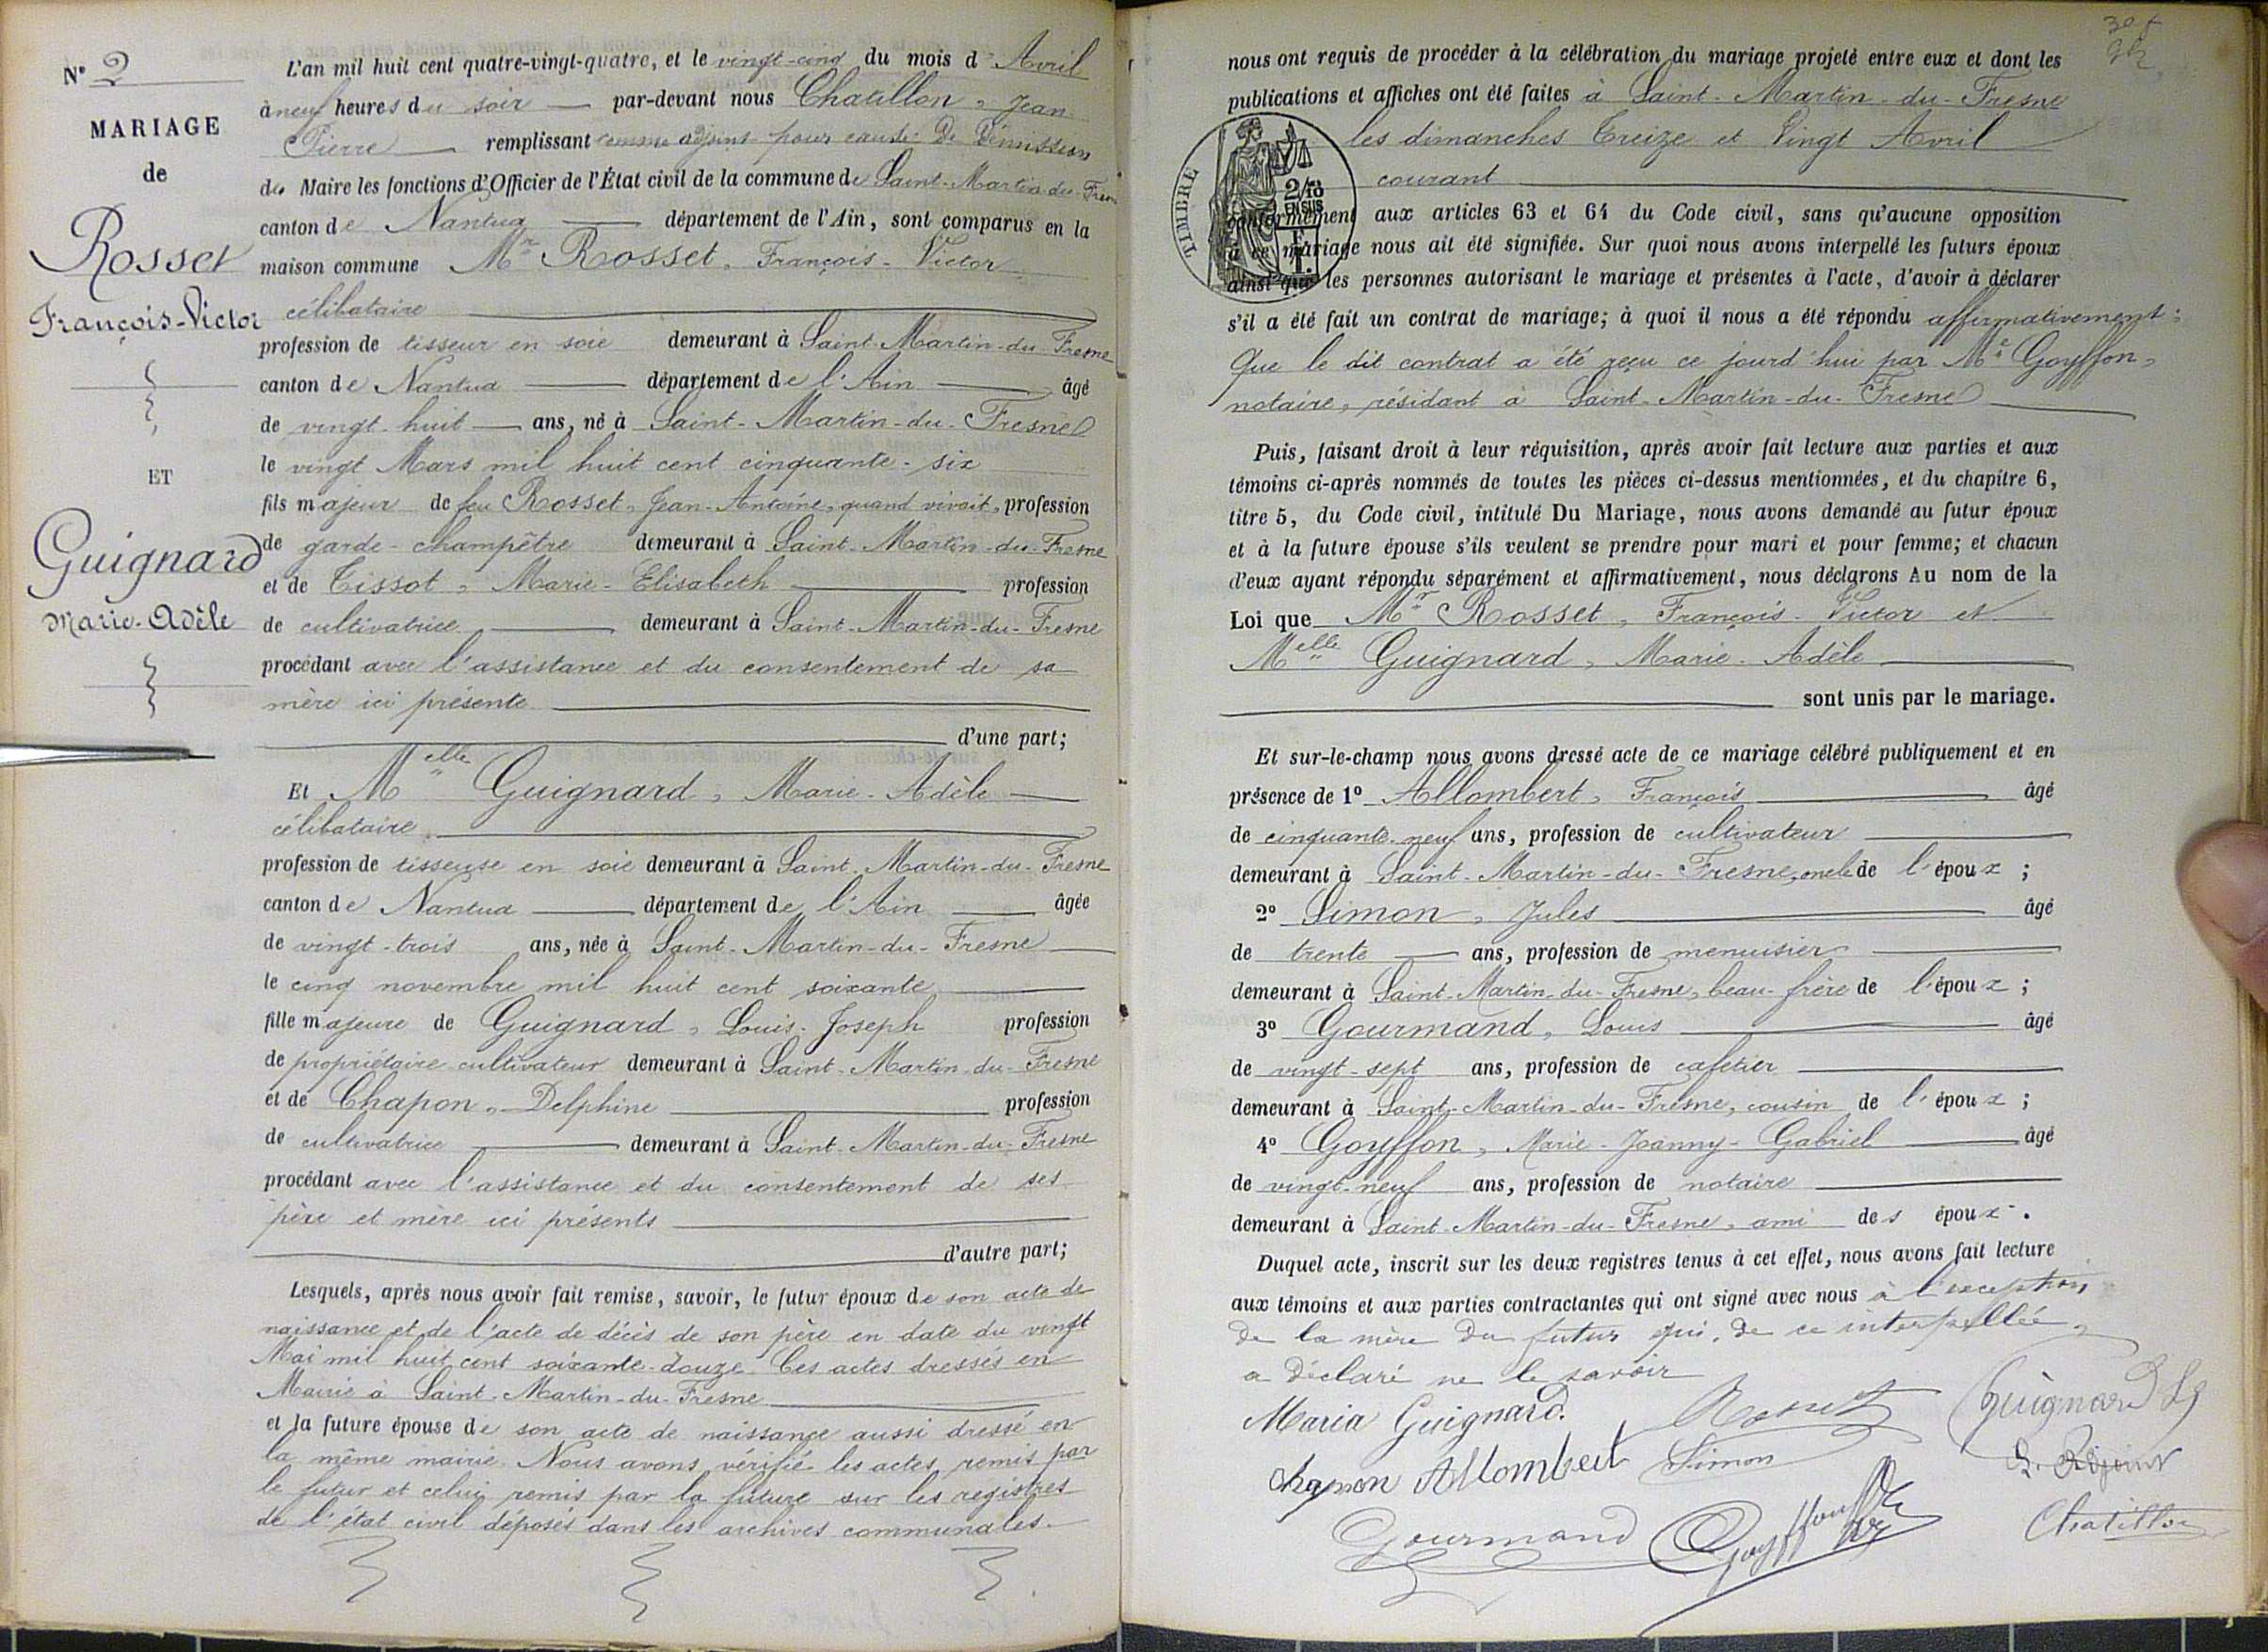 N° 2
MARIAGE
de
Rosset
François-Victor
ET
Guignard
Marie-Adèle
L'an mil huit cent quatre-vingt-quatre, et le vingt-cinq du mois d'Avril
à neuf heures du soir par-devant nous Chatillon, Jean
Pierre remplissant comme adjoint pour cause de Démission
du Maire les fonctions d'Officier de l'État civil de la commune de Saint-Martin-du-Fresne
canton de Nantua département de l'Ain, sont comparus en la
maison commune Mr Rosset, François-Victor
célibataire
profession de tisseur en soie demeurant à Saint-Martin-du-Fresne
canton de Nantua département de l'Ain âgé
de vingt-huit ans, né à Saint-Martin-du-Fresne
le vingt Mars mil huit cent cinquante-six
fils majeur de feu Rosset, Jean-Antoine, quand vivait, profession
de garde-champêtre demeurant à Saint-Martin-du-Fresne
et de Tissot, Marie-Elisabeth profession
de cultivatrice demeurant à Saint-Martin-du-Fresne
procédant avec l'assistance et du consentement de sa
mère ici présente
d'une part;
Et Melle Guignard, Marie-Adèle
célibataire
profession de tisseuse en soie demeurant à Saint-Martin-du-Fresne
canton de Nantua département de l'Ain âgée
de vingt-trois ans, née à Saint-Martin-du-Fresne
le cinq novembre mil huit cent soixante
fille majeure de Guignard, Louis-Joseph profession
de propriétaire cultivateur demeurant à Saint-Martin-du-Fresne
et de Chapon, Delphine profession
de cultivatrice demeurant à Saint-Martin-du-Fresne
procédant avec l'assistance et du consentement de ses
père et mère ici présents
d'autre part;
Lesquels, après nous avoir fait remise, savoir, le futur époux de son acte de
naissance et de l'acte de décès de son père en date du vingt
Mai mil huit cent soixante-douze. Ces actes dressés en
Mairie à Saint-Martin-du-Fresne
et la future épouse de son acte de naissance aussi dressé en
la même mairie. Nous avons vérifié les actes remis par
le futur et celui remis par la future sur les registres
de l'état civil déposés dans les archives communales.
nous ont requis de procéder à la célébration du mariage projeté entre eux et dont les
publications et affiches ont été faites à Saint-Martin-du-Fresne
les dimanches Treize et Vingt Avril
courant
TIMBRE
2/10
EN SUS
conformément aux articles 63 et 64 du Code civil, sans qu'aucune opposition
à ce mariage nous ait été signifiée. Sur quoi nous avons interpellé les futurs époux
ainsi que les personnes autorisant le mariage et présentes à l'acte, d'avoir à déclarer
s'il a été fait un contrat de mariage; à quoi il nous a été répondu affirmativement:
Que le dit contrat a été reçu ce jourd'hui par Me Goyffon,
notaire, résidant à Saint-Martin-du-Fresne
Puis, faisant droit à leur réquisition, après avoir fait lecture aux parties et aux
témoins ci-après nommés de toutes les pièces ci-dessus mentionnées, et du chapitre 6,
titre 5, du Code civil, intitulé Du Mariage, nous avons demandé au futur époux
et à la future épouse s'ils veulent se prendre pour mari et pour femme; et chacun
d'eux ayant répondu séparément et affirmativement, nous déclarons Au nom de la
Loi que Mr Rosset, François-Victor et
Melle Guignard, Marie-Adèle
sont unis par le mariage.
Et sur-le-champ nous avons dressé acte de ce mariage célébré publiquement et en
présence de 1° Allombert, François âgé
de cinquante-neuf ans, profession de cultivateur
demeurant à Saint-Martin-du-Fresne, oncle de l'époux ;
2° Simon, Jules âgé
de trente ans, profession de menuisier
demeurant à Saint-Martin-du-Fresne, beau-frère de l'époux ;
3° Gourmand, Louis âgé
de vingt-sept ans, profession de cafetier
demeurant à Saint-Martin-du-Fresne, cousin de l'époux ;
4° Goyffon, Marie-Joanny-Gabriel âgé
de vingt-neuf ans, profession de notaire
demeurant à Saint-Martin-du-Fresne, ami des époux.
Duquel acte, inscrit sur les deux registres tenus à cet effet, nous avons fait lecture
aux témoins et aux parties contractantes qui ont signé avec nous à l'exception
de la mère du futur qui, de ce interpellée,
a déclaré ne le savoir
Maria Guignard. Rosset Guignard Lg
Chapon Allombert Simon L'Adjoint
Gourmand Goyffon Chatillon